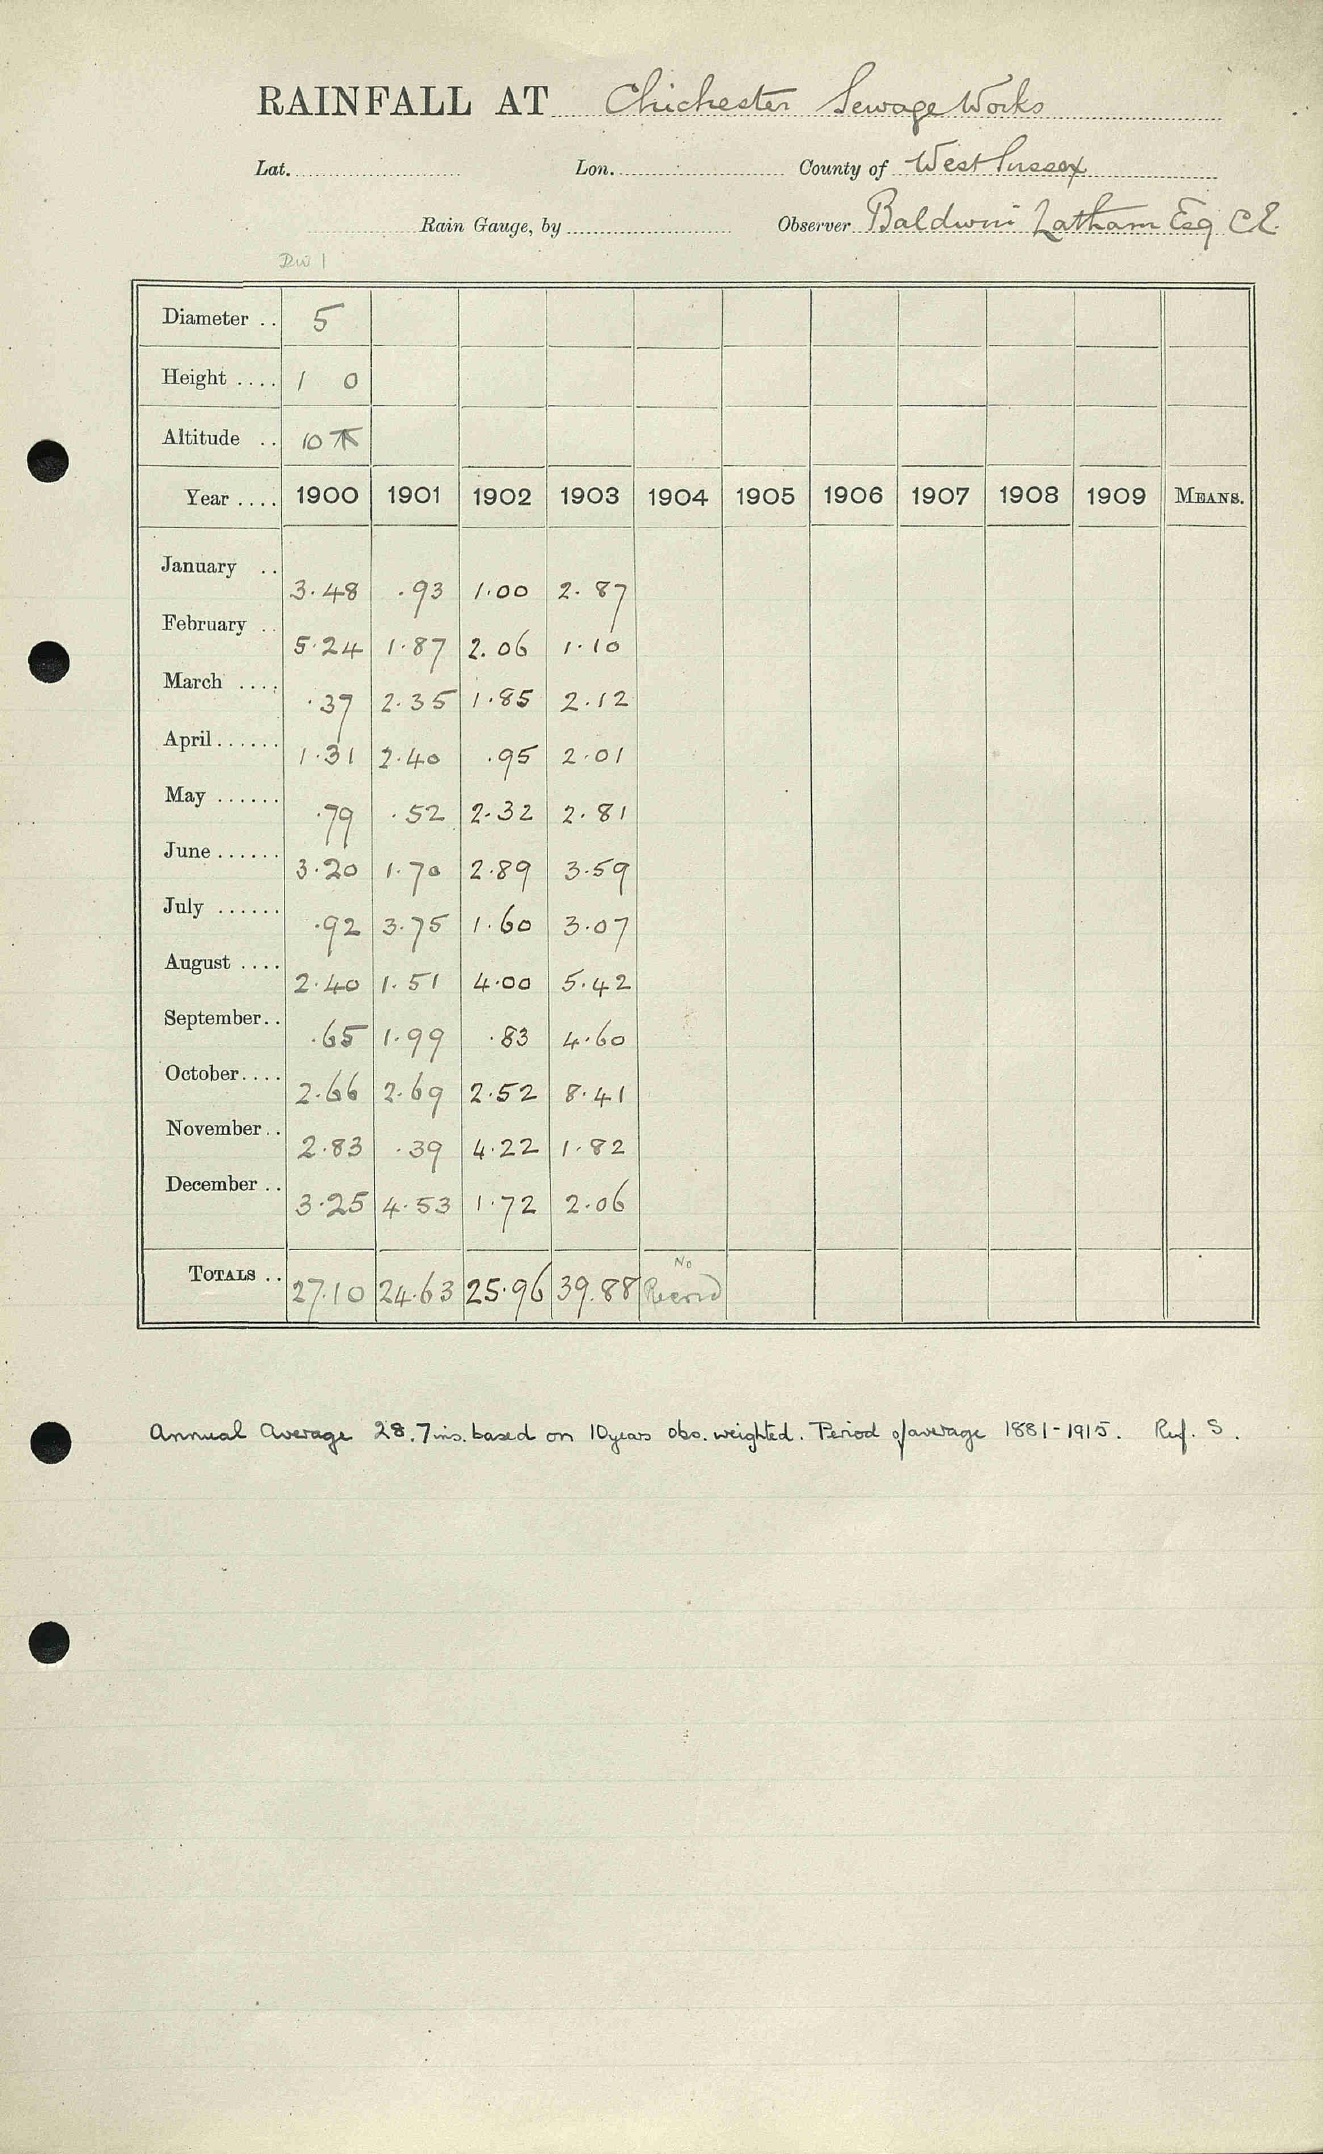 RAINFALL AT Chichester Sewage Works
Lat. Lon. County of West Sussex
Rain Gauge, by Observer Baldwin Latham Esq C.E.
Diameter .. 5
Height .... 1 0
Altitude .. 10
Year .... 1900 1901 1902 1903 1904 1905 1906 1907 1908 1909 MEANS.
January .. 3.48 .93 1.00 2.87
February .. 5.24 1.87 2.06 1.10
March .... .37 2.35 1.85 2.12
April ...... 1.31 2.40 .95 2.01
May ...... .79 .52 2.32 2.81
June ...... 3.20 1.70 2.89 3.59
July ...... .92 3.75 1.60 3.07
August .... 2.40 1.51 4.00 5.42
September.. .65 1.99 .83 4.60
October.... 2.66 2.69 2.52 8.41
November.. 2.83 .39 4.22 1.82
December .. 3.25 4.53 1.72 2.06
TOTALS .. 27.10 24.63 25.96 39.88 No Record
Annual Average 28.7 ins. based on 10 years obs. weighted. Period of average 1881-1915. Ref. S.